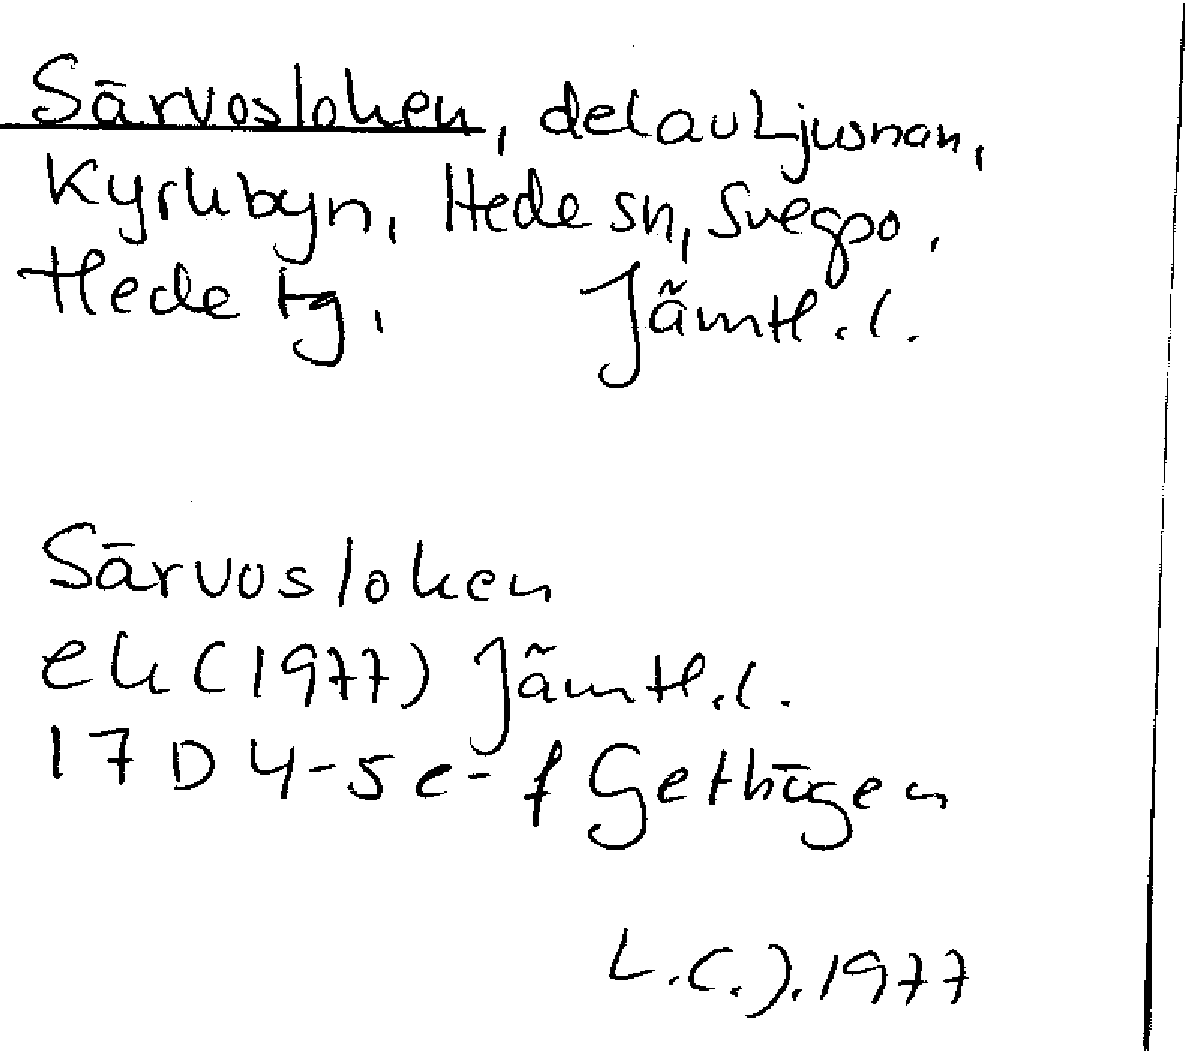 Särvosloken, del av Ljusnan,
Kyrkbyn, Hede sn, Svegs po.
Hede tg, Jämtl. l.
Särvosloken
ek (1977) Jämtl. l.
17 D 4-5 e-f Gethögen
L.C.J. 1977